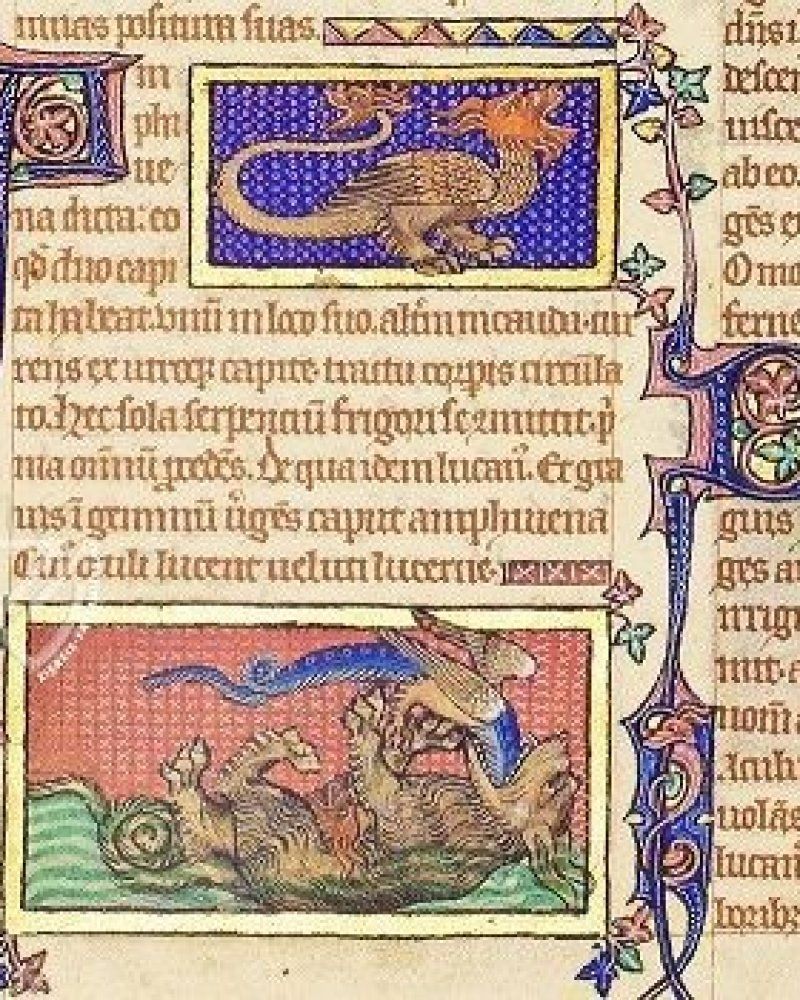 nuas positura suas.
m
phi
ue
na dicta: eo
qd duo capi
ta habeat. unū in loco suo. altm in cauda. cur
rens ex utroqz capite tractu corpis circula
to. Hec sola serpenciū frigori se cōmittit. p
ma omniū pcedēs. De qua idem lucan. Et gra
uis ī geminū ugēs caput amphiuena
Cui oculi lucent ueluti lucerne.
dn̄s
descen
uisce
ab eo.
gēs
O mo
ferne
guis
ges
nrigu
mit.
nom
Iaculu
uolās
lucan